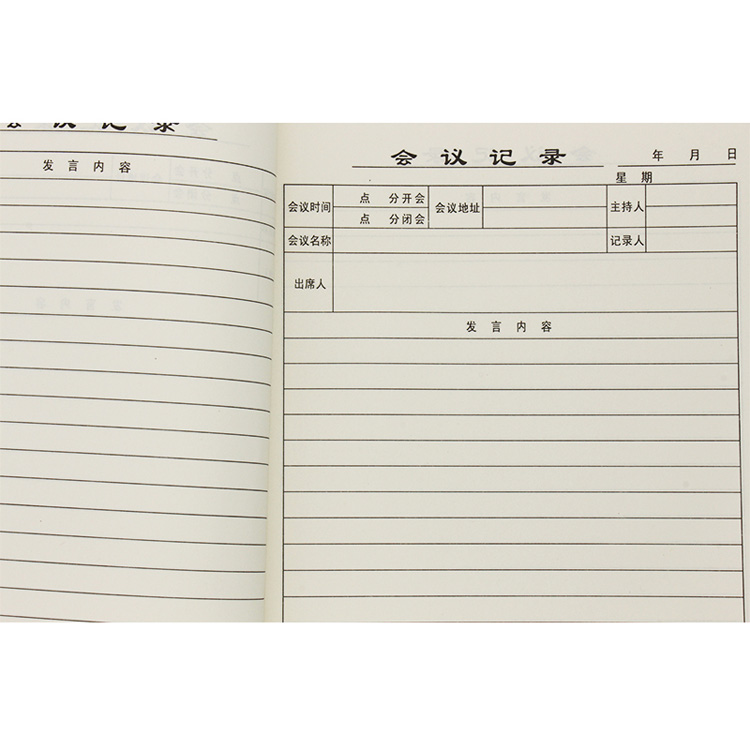 会议记录
发言内容
会议记录 年 月 日
星期
会议时间 点 分开会 会议地址 主持人
点 分闭会
会议名称 记录人
出席人
发言内容